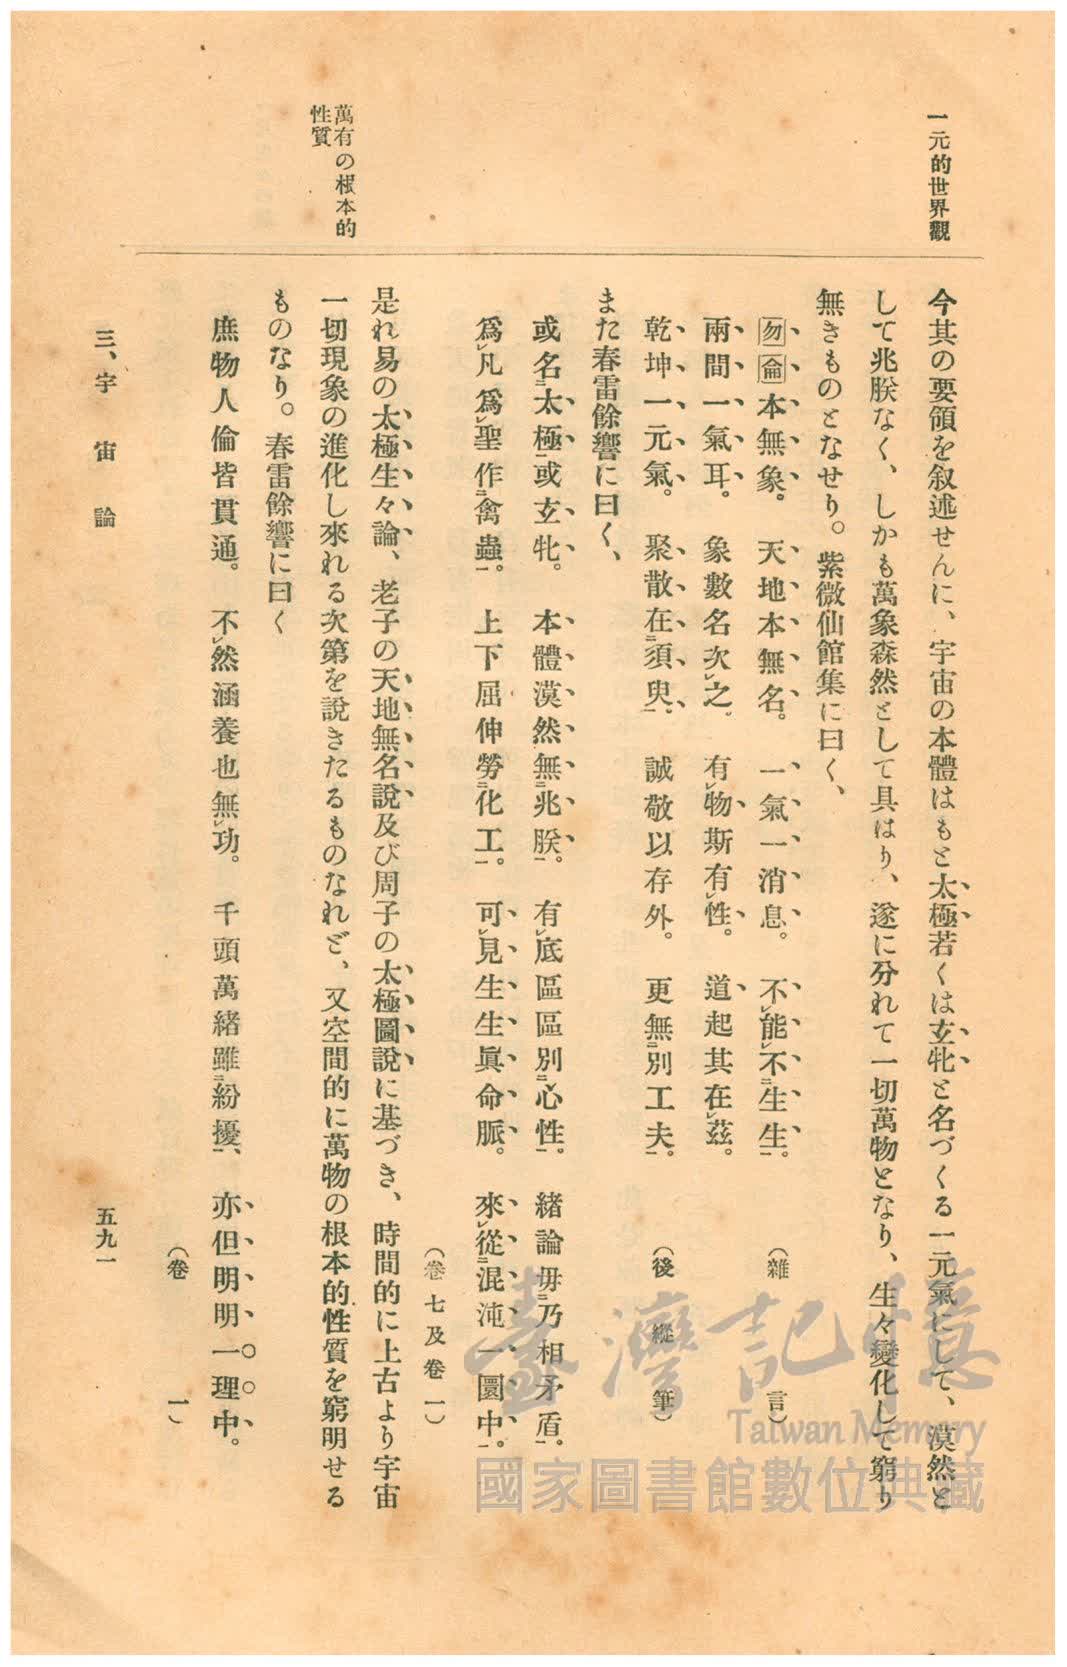 一元的世界觀
今其の要領を叙述せんに、宇宙の本體はもと太極若くは玄牝と名づくる一元氣にして、漠然と
して兆朕なく、しかも萬象森然として具はり、遂に分れて一切萬物となり、生々變化して窮り
無きものとなせり。紫微仙館集に曰く、
勿侖本無象。天地本無名。一氣一消息。不レ能レ不二生生一。（雜言）
兩間一氣耳。象數名次レ之。有レ物斯有レ性。道起其在レ茲。
乾坤一元氣。聚散在二須臾一。誠敬以存外。更無二別工夫一。（後縱筆）
また春雷餘響に曰く、
或名二太極一或玄牝。本體漠然無二兆朕一。有レ底區區別二心性一。緒論毋二乃相矛盾一。
爲レ凡爲レ聖作二禽蟲一。上下屈伸勞二化工一。可レ見生生眞命脈。來レ從二混沌一圜中一。
（卷七及卷一）
是れ易の太極生々論、老子の天地無名說及び周子の太極圖說に基づき、時間的に上古より宇宙
一切現象の進化し來れる次第を說きたるものなれど、又空間的に萬物の根本的性質を窮明せる
萬有の根本的
性質
ものなり。春雷餘響に曰く
庶物人倫皆貫通。不レ然涵養也無レ功。千頭萬緒雖二紛擾一、亦但明明一理中。
（卷一）
三、宇宙論
五九一
臺灣記憶
Taiwan Memory
國家圖書館數位典藏